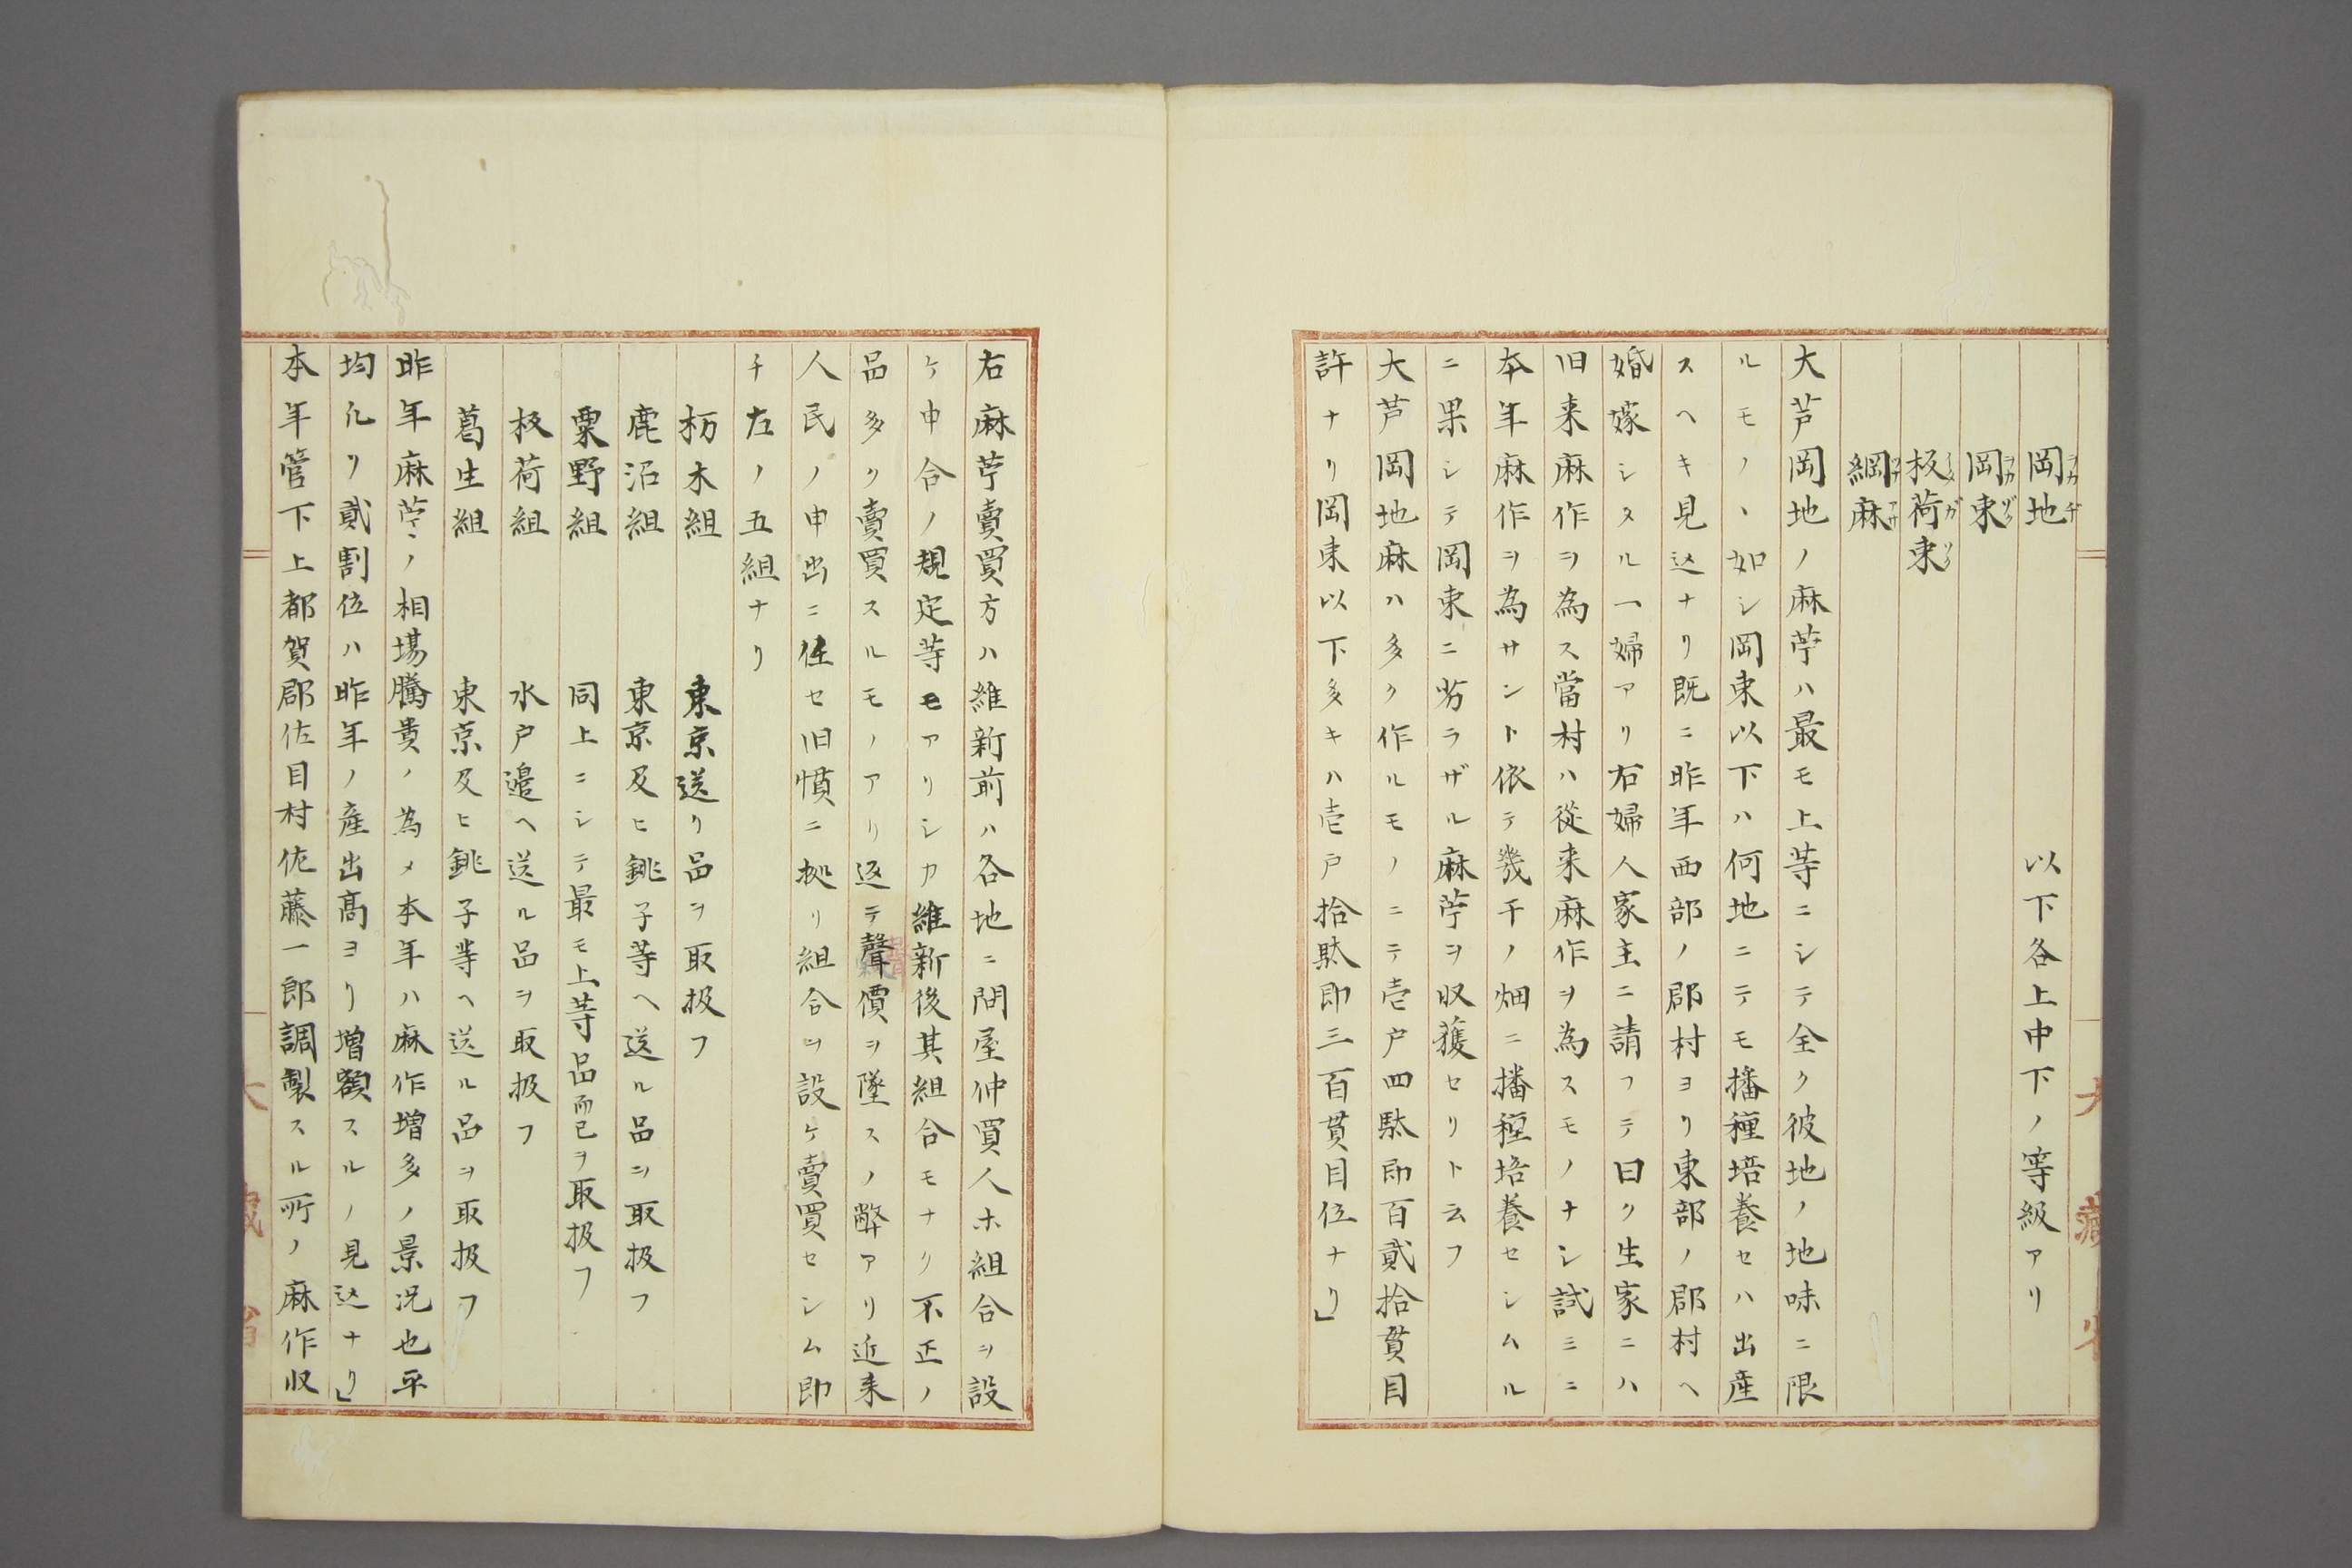 岡地 以下各上中下ノ等級アリ
ヲカ ヂ
岡束
ヲカ ヅカ
板荷束
イタ ガ ヅカ
綱麻
ツナ アサ
大芦岡地ノ麻苧ハ最モ上等ニシテ全ク彼地ノ地味ニ限
ルモノヽ如シ岡束以下ハ何地ニテモ播種培養セハ出産
スヘキ見込ナリ既ニ昨年西部ノ郡村ヨリ東部ノ郡村ヘ
婚嫁シタル一婦アリ右婦人家主ニ請フテ曰ク生家ニハ
旧来麻作ヲ為ス當村ハ従来麻作ヲ為スモノナシ試ミニ
本年麻作ヲ為サント依テ幾干ノ畑ニ播種培養セシムル
ニ果シテ岡束ニ劣ラザル麻苧ヲ収獲セリト云フ
大芦岡地麻ハ多ク作ルモノニテ壱戸四駄即百貳拾貫目
許ナリ岡束以下多キハ壱戸拾駄即三百貫目位ナリ」
大藏省
右麻苧賣買方ハ維新前ハ各地ニ問屋仲買人ホ組合ヲ設
ケ申合ノ規定等モアリシカ維新後其組合モナク不正ノ
品多ク賣買スルモノアリ返テ聲價ヲ墜スノ弊アリ近来
人民ノ申出ニ任セ旧慣ニ拠リ組合ヲ設ケ賣買セシム即
チ左ノ五組ナリ
栃木組 東京送リ品ヲ取扱フ
鹿沼組 東京及ヒ銚子等ヘ送ル品ヲ取扱フ
粟野組 同上ニシテ最モ上等品而已ヲ取扱フ
板荷組 水戸邉ヘ送ル品ヲ取扱フ
葛生組 東京及ヒ銚子等ヘ送ル品ヲ取扱フ
昨年麻苧ノ相場騰貴ノ為メ本年ハ麻作増多ノ景况也平
均凡ソ貳割位ハ昨年ノ産出高ヨリ増額スルノ見込ナリ」
本年管下上都賀郡佐目村佐藤一郎調製スル所ノ麻作収
大藏省